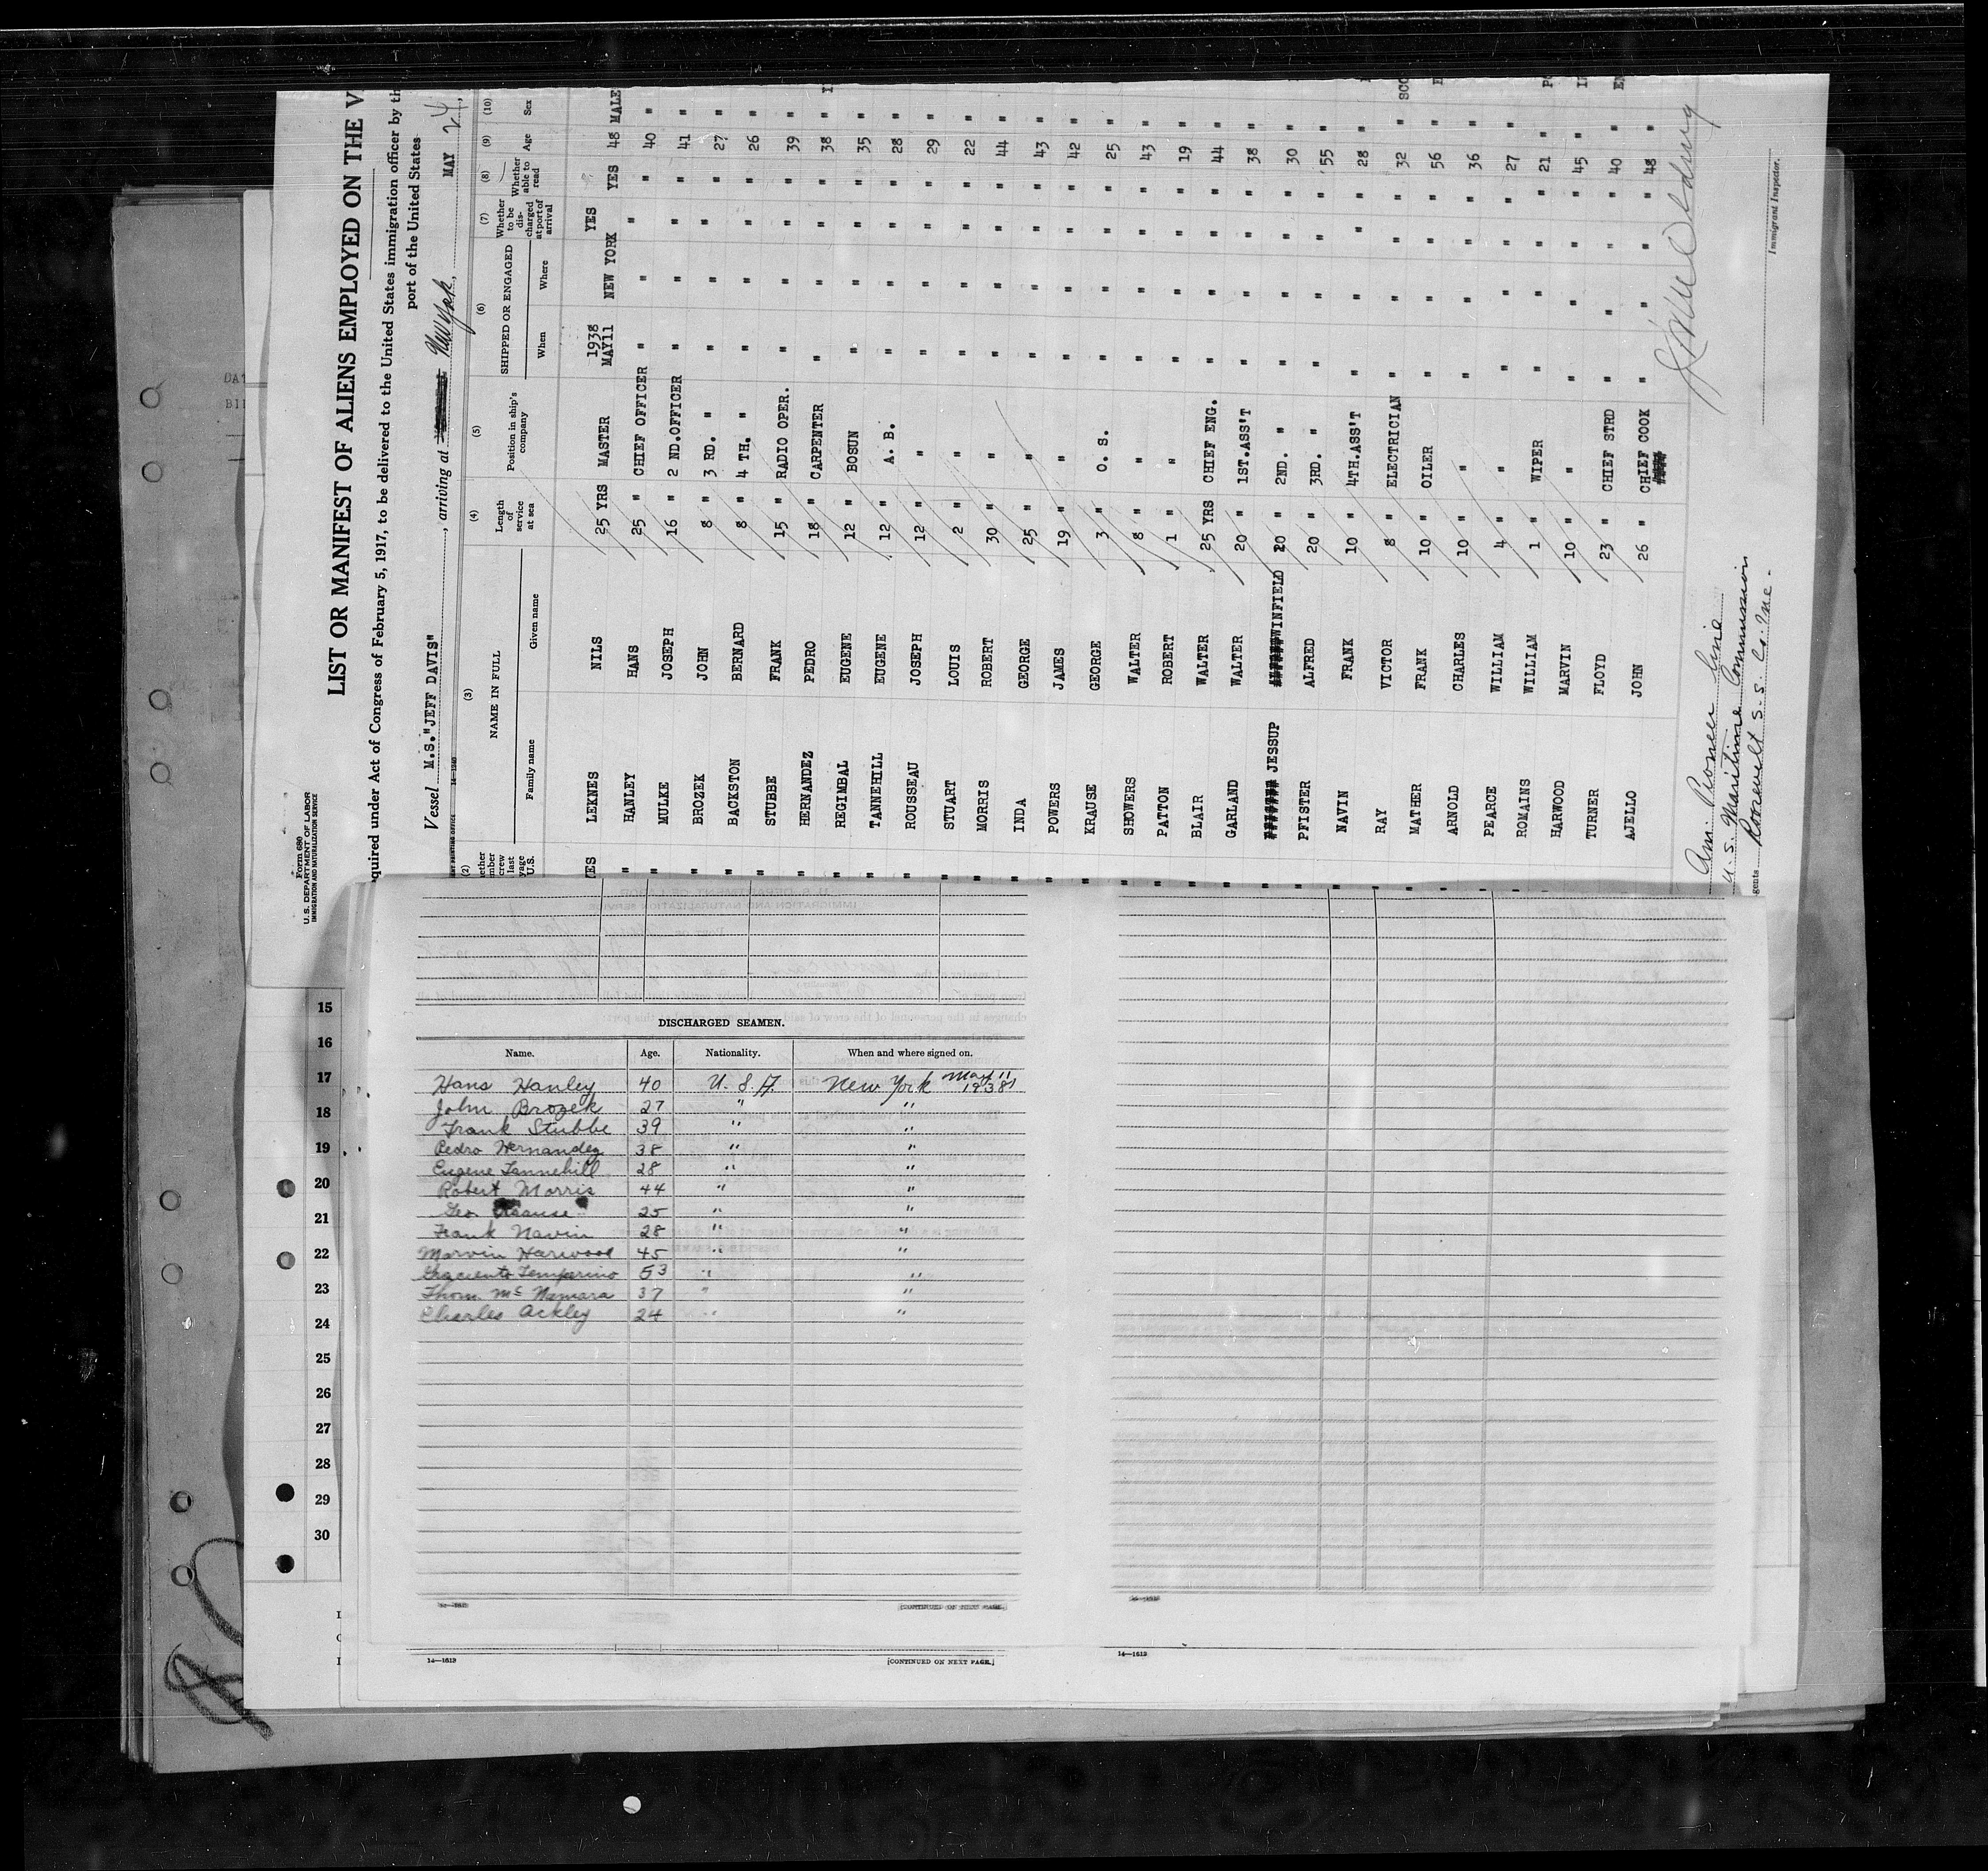 Form 680
U.S. DEPARTMENT OF LABOR
IMMIGRATION AND NATURALIZATION SERVICE
LIST OR MANIFEST OF ALIENS EMPLOYED ON THE V
quired under Act of Congress of February 5, 1917, to be delivered to the United States immigration officer by th
port of the United States
Vessel M.S."JEFF DAVIS", arriving at New York, MAY 24,
14—1240
(2) (3) (4) (5) (6) (7) (8) (9) (10)
NAME IN FULL Length of service at sea Position in ship's company SHIPPED OR ENGAGED Whether to be discharged at port of arrival Whether able to read Age Sex
Family name Given name When Where
YES LEKNES NILS 25 YRS MASTER 1938 MAY11 NEW YORK YES YES 48 MALE
" HANLEY HANS 25 " CHIEF OFFICER " " " " 40 "
" MULKE JOSEPH 16 " 2 ND.OFFICER " " " " 41 "
" BROZEK JOHN 8 " 3 RD. " " " " " 27 "
" BACKSTON BERNARD 8 " 4 TH. " " " " " 26 "
" STUBBE FRANK 15 " RADIO OPER. " " " " 39 "
" HERNANDEZ PEDRO 18 " CARPENTER " " " " 38 "
" REGIMBAL EUGENE 12 " BOSUN " " " " 35 "
" TANNEHILL EUGENE 12 " A. B. " " " " 28 "
" ROUSSEAU JOSEPH 12 " " " " " " 29 "
" STUART LOUIS 2 " " " " " " 22 "
" MORRIS ROBERT 30 " " " " " " 44 "
" INDA GEORGE 25 " " " " " " 43 "
" POWERS JAMES 19 " " " " " " 42 "
" KRAUSE GEORGE 3 " O. S. " " " " 25 "
" SHOWERS WALTER 8 " " " " " " 43 "
" PATTON ROBERT 1 " " " " " " 19 "
" BLAIR WALTER 25 YRS CHIEF ENG. " " " " 44 "
" GARLAND WALTER 20 " 1ST.ASS'T " " " " 38 "
" JESSUP WINFIELD 20 " 2ND. " " " " " 30 "
" PFISTER ALFRED 20 " 3RD. " " " " " 55 "
" NAVIN FRANK 10 " 4TH.ASS'T " " " " 28 "
" RAY VICTOR 8 " ELECTRICIAN " " " " 32 "
" MATHER FRANK 10 " OILER " " " " 56 "
" ARNOLD CHARLES 10 " " " " " " 36 "
" PEARCE WILLIAM 4 " " " " " " 27 "
" ROMAINS WILLIAM 1 " WIPER " " " " 21 "
" HARWOOD MARVIN 10 " " " " " " 45 "
" TURNER FLOYD 23 " CHIEF STRD " " " " 40 "
" AJELLO JOHN 26 " CHIEF COOK " " " " 48 "
Am. Pioneer Line
U. S. Maritime Commission
gents Roosevelt S. S. Co. Inc.
Immigrant Inspector.
15
16
17
18
19
20
21
22
23
24
25
26
27
28
29
30
DISCHARGED SEAMEN.
Name. Age. Nationality. When and where signed on.
Hans Hanley 40 U. S. A. New York May 11 1938
John Brozek 27 " "
Frank Stubbe 39 " "
Pedro Hernandez 38 " "
Eugene Tannehill 28 " "
Robert Morris 44 " "
Geo Krause 25 " "
Frank Navin 28 " "
Marvin Harwood 45 " "
Graciento Temperino 53 " "
Thom. McNamara 37 " "
Charles Ackley 24 " "
[CONTINUED ON NEXT PAGE.]
14—1613 [CONTINUED ON NEXT PAGE.]
14—1613